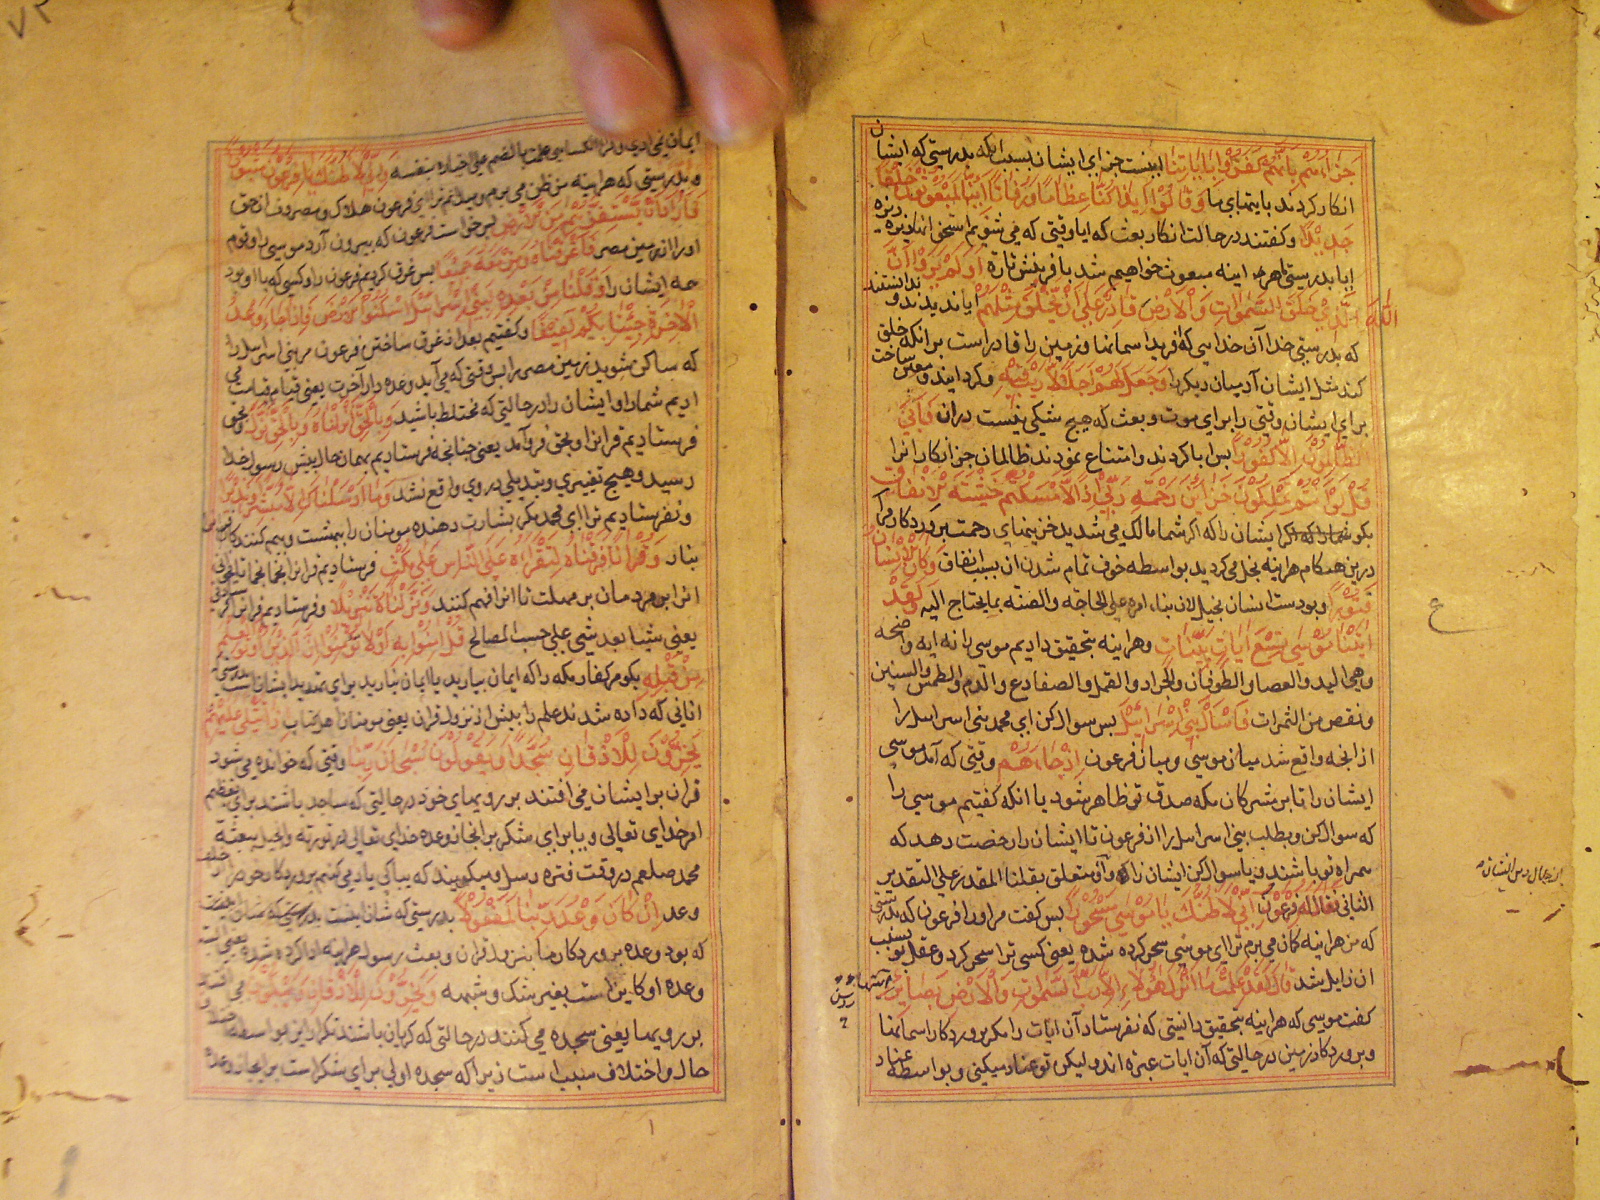 جَزَاؤُهُمْ بِاَنَّهُمْ كَفَرُوْا بِاٰيَاتِنَا اینست جزای ایشان بسبب انکه بدرستی که ایشان
انکار کردند بایتهای ما وَقَالُوْا ءَاِذَا كُنَّا عِظَامًا وَرُفَاتًا ءَاِنَّا لَمَبْعُوْثُوْنَ خَلْقًا
جَدِيْدًا و کفتند در حالت انکار بعث که ایا وقتی که می شویم استخوانها و ریزه ریزه
ایا بدرستی ما هراینه مبعوث خواهیم شد بافرینش تازه اَوَلَمْ يَرَوْا اَنَّ
اللّٰهَ الَّذِيْ خَلَقَ السَّمٰوَاتِ وَالْاَرْضَ قَادِرٌ عَلٰى اَنْ يَّخْلُقَ مِثْلَهُمْ ایا ندیدند و ندانستند
که بدرستی خدا آن خدایی که افرید اسمانها و زمین را قادر است برانکه خلق
کند مثل ایشان آدمیان دیکر را وَجَعَلَ لَهُمْ اَجَلًا لَّا رَيْبَ فِيْهِ و کردانید و معین ساخت
برای ایشان وقتی را برای موت و بعث که هیچ شکی نیست دران فَاَبَى
الظَّالِمُوْنَ اِلَّا كُفُوْرًا پس ابا کردند و امتناع نمودند ظالمان جز انکار انرا
قُلْ لَوْ اَنْتُمْ تَمْلِكُوْنَ خَزَائِنَ رَحْمَةِ رَبِّيْ اِذًا لَّاَمْسَكْتُمْ خَشْيَةَ الْاِنْفَاقِ
بکو ایشان را که اکر شما مالک می شدید خزینهای رحمت پروردکار مرا
درین هنکام هراینه بخل می کردید بواسطه خوف تمام شدن ان بسبب انفاق وَكَانَ الْاِنْسَانُ
قَتُوْرًا و بودست انسان بخیل لان بناء امره علی الحاجة والضنة بما یحتاج الیه وَلَقَدْ
اٰتَيْنَا مُوْسٰى تِسْعَ اٰيَاتٍ بَيِّنَاتٍ و هراینه بتحقیق دادیم موسی را نه ایه واضحه
وهی الید والعصا والطوفان والجراد والقمل والضفادع والدم والطمس والسنین
ونقص من الثمرات فَاسْأَلْ بَنِيْ اِسْرَائِيْلَ پس سوال کن ای محمد بنی اسراییل را
از انچه واقع شد میان موسی و میان فرعون اِذْ جَاءَهُمْ وقتی که آمد موسی
ایشان را تا بر مشرکان مکه صدق تو ظاهر شود یا انکه کفتیم موسی را
که سوال کن و بطلب بنی اسراییل را از فرعون تا ایشان را رخصت دهد که
همراه تو باشند و یا سوال کن ایشان را و آن متعلق بقلنا المقدر علی التقدیر
الثانی فَقَالَ لَهٗ فِرْعَوْنُ اِنِّيْ لَاَظُنُّكَ يَا مُوْسٰى مَسْحُوْرًا پس کفت مر اورا فرعون که بدرستی
که من هراینه کمان می برم ترا ای موسی سحر کرده شده یعنی کسی ترا سحر کرد و عقل تو بسبب
ان زایل شد قَالَ لَقَدْ عَلِمْتَ مَا اَنْزَلَ هٰؤُلَاءِ اِلَّا رَبُّ السَّمٰوَاتِ وَالْاَرْضِ بَصَائِرَ
کفت موسی که هراینه بتحقیق دانستی که نفرستاد آن ایات را مکر پروردکار اسمانها
و پروردکار زمین در حالتی که آن ایات عبره اند ولیکن تو عناد میکینی و بواسطه عناد
ایمان نمی اری
و بدرستی که هراینه من ظن می برم و میدانم ترا ای فرعون هلاک و مصروف از حق
فَاَرَادَ اَنْ يَّسْتَفِزَّهُمْ مِنَ الْاَرْضِ پس خواست فرعون که بیرون آرد موسی را و قوم
اورا از زمین مصر فَاَغْرَقْنَاهُ وَمَنْ مَّعَهٗ جَمِيْعًا پس غرق کردیم فرعون را و کسی که با او بود
همه ایشان را وَقُلْنَا مِنْ بَعْدِهٖ لِبَنِيْ اِسْرَائِيْلَ اسْكُنُوا الْاَرْضَ فَاِذَا جَاءَ وَعْدُ
الْاٰخِرَةِ جِئْنَا بِكُمْ لَفِيْفًا و کفتیم بعد از غرق ساختن فرعون مر بنی اسراییل را
که ساکن شوید زمین مصر را پس وقتی که می آید وعده دار آخرت یعنی قیام قیامت می
اریم شما را و ایشان را در حالتی که مختلط باشید وَبِالْحَقِّ اَنْزَلْنَاهُ وَبِالْحَقِّ نَزَلَ و بحق
فرستادیم قرانرا و بحق فرو آمد یعنی چنانچه فرستادیم بهمان حال پیش رسول خدا
رسید و هیچ تغییری و تبدیلی در وی واقع نشد وَمَا اَرْسَلْنَاكَ اِلَّا مُبَشِّرًا وَنَذِيْرًا
و نفرستادیم ترا ای محمد مکر بشارت دهنده مومنان را ببهشت و بیم کننده کافران
بنار وَقُرْاٰنًا فَرَقْنَاهُ لِتَقْرَاَهٗ عَلَى النَّاسِ عَلٰى مُكْثٍ فرستادیم قرانرا نجما نجما تا بخوانی
انرا بر مردمان بر مهلت تا انرا فهم کنند وَنَزَّلْنَاهُ تَنْزِيْلًا و فرستادیم قرانرا
یعنی شیئا بعد شئ علی حسب المصالح قُلْ اٰمِنُوْا بِهٖ اَوْ لَا تُؤْمِنُوْا اِنَّ الَّذِيْنَ اُوْتُوا الْعِلْمَ
مِنْ قَبْلِهٖ بکو مر کفار مکه را که ایمان بیارید یا ایمان نیارید برای تهدید ایشان است بدرستی
انانی که داده شدند علم را پیش از نزول قران یعنی مومنان اهل کتاب اِذَا يُتْلٰى عَلَيْهِمْ
يَخِرُّوْنَ لِلْاَذْقَانِ سُجَّدًا وَيَقُوْلُوْنَ سُبْحَانَ رَبِّنَا وقتی که خوانده می شود
قران بر ایشان می افتند بر رویهای خود در حالتی که ساجد باشند برای تعظیم
امر خدای تعالی و یا برای شکر بر انجاز وعده خدای تعالی در توریة و انجیل ببعثة
محمد صلعم در وقت فترة رسل و میکویند که بپاکی یاد می کنیم پروردکار خود را از خلف
وعد اِنْ كَانَ وَعْدُ رَبِّنَا لَمَفْعُوْلًا بدرستی که شان اینست
که بود وعده پروردکار ما بتنزیل قران و بعث رسول هراینه ادا کرده شده یعنی ایت
وعده او کاین است بغیر شک و شبهه وَيَخِرُّوْنَ لِلْاَذْقَانِ يَبْكُوْنَ می افتند
بر رویها یعنی سجده می کنند در حالتی که کریان باشند تکرار این بواسطه
حال و اختلاف سبب است زیرا که سجده اولی برای شکر است بر انجاز وعده